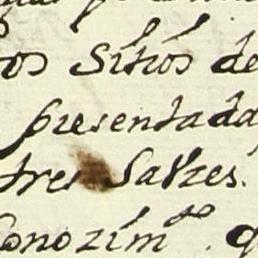 os Sitios de
presentada
tres Salzes.
Conozim.to q